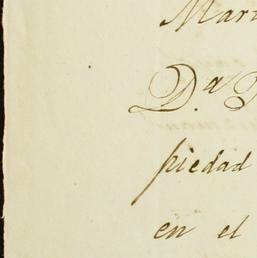 Mar
D.ª
piedad
en el